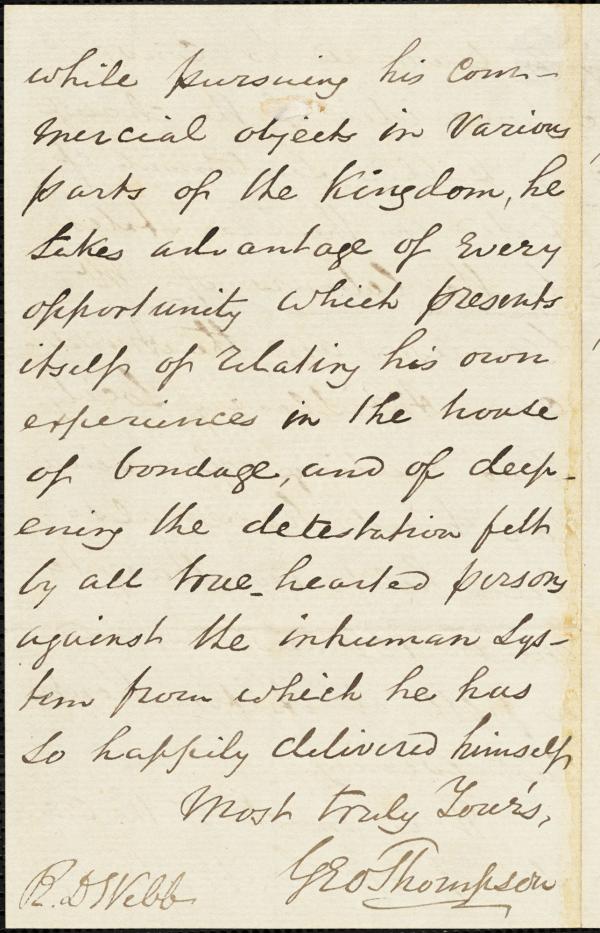 while pursuing his com-
mercial objects in various
parts of the Kingdom, he
takes advantage of every
opportunity which presents
itself of relating his own
experiences in the house
of bondage, and of deep-
ening the detestation felt
by all true-hearted persons
against the inhuman sys-
tem from which he has
so happily delivered himself
Most truly Your's,
Geo Thompson
R. D Webb